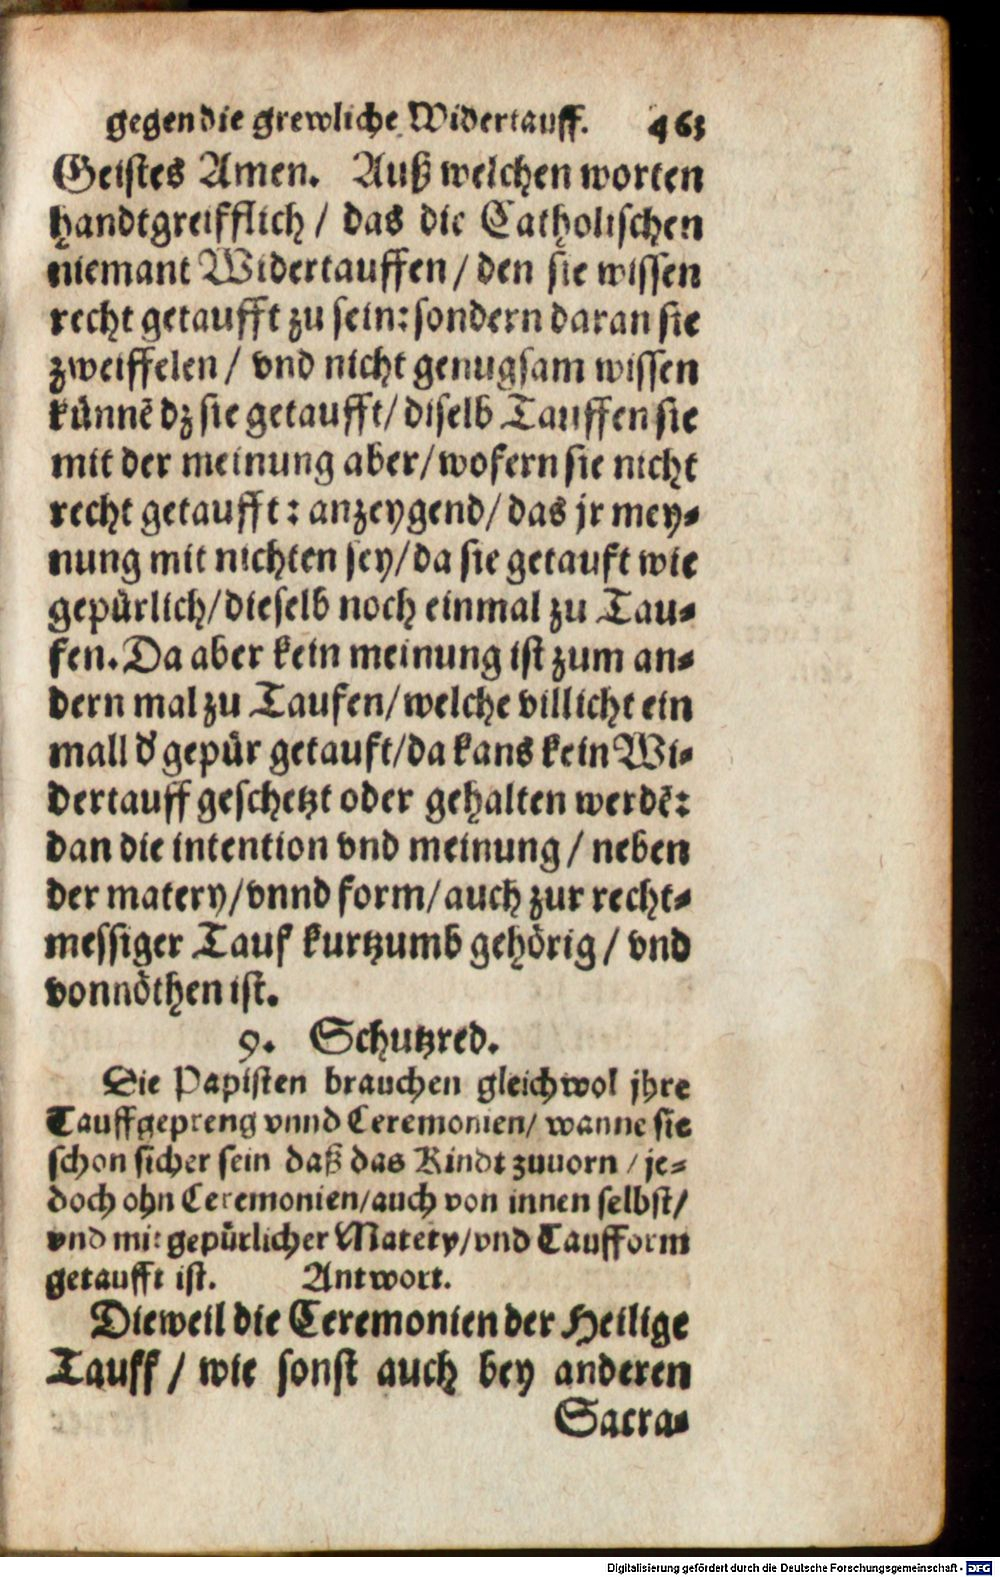 gegen die grewliche Widertauff. 463
Geistes Amen. Auß welchen worten
handtgreifflich / das die Catholischen
niemant Widertauffen / den sie wissen
recht getaufft zu sein: sondern daran sie
zweiffelen / vnd nicht genugsam wissen
künnē dz sie getaufft / diselb Tauffen sie
mit der meinung aber / wofern sie nicht
recht getaufft: anzeygend / das jr mey⸗
nung mit nichten sey / da sie getauft wie
gepürlich / dieselb noch einmal zu Tau⸗
fen. Da aber kein meinung ist zum an⸗
dern mal zu Taufen / welche villicht ein
mall d' gepür getauft / da kans kein Wi⸗
dertauff geschetzt oder gehalten werdē:
dan die intention vnd meinung / neben
der matery / vnnd form / auch zur recht⸗
messiger Tauf kurtzumb gehörig / vnd
vonnöthen ist.
9. Schutzred.
Die Papisten brauchen gleichwol jhre
Tauffgepreng vnnd Ceremonien / wanne sie
schon sicher sein daß das Kindt zuuorn / je⸗
doch ohn Ceremonien / auch von innen selbst /
vnd mit gepürlicher Matery / vnd Taufform
getaufft ist. Antwort.
Dieweil die Ceremonien der Heilige
Tauff / wie sonst auch bey anderen
Sacra⸗
Digitalisierung gefördert durch die Deutsche Forschungsgemeinschaft - DFG